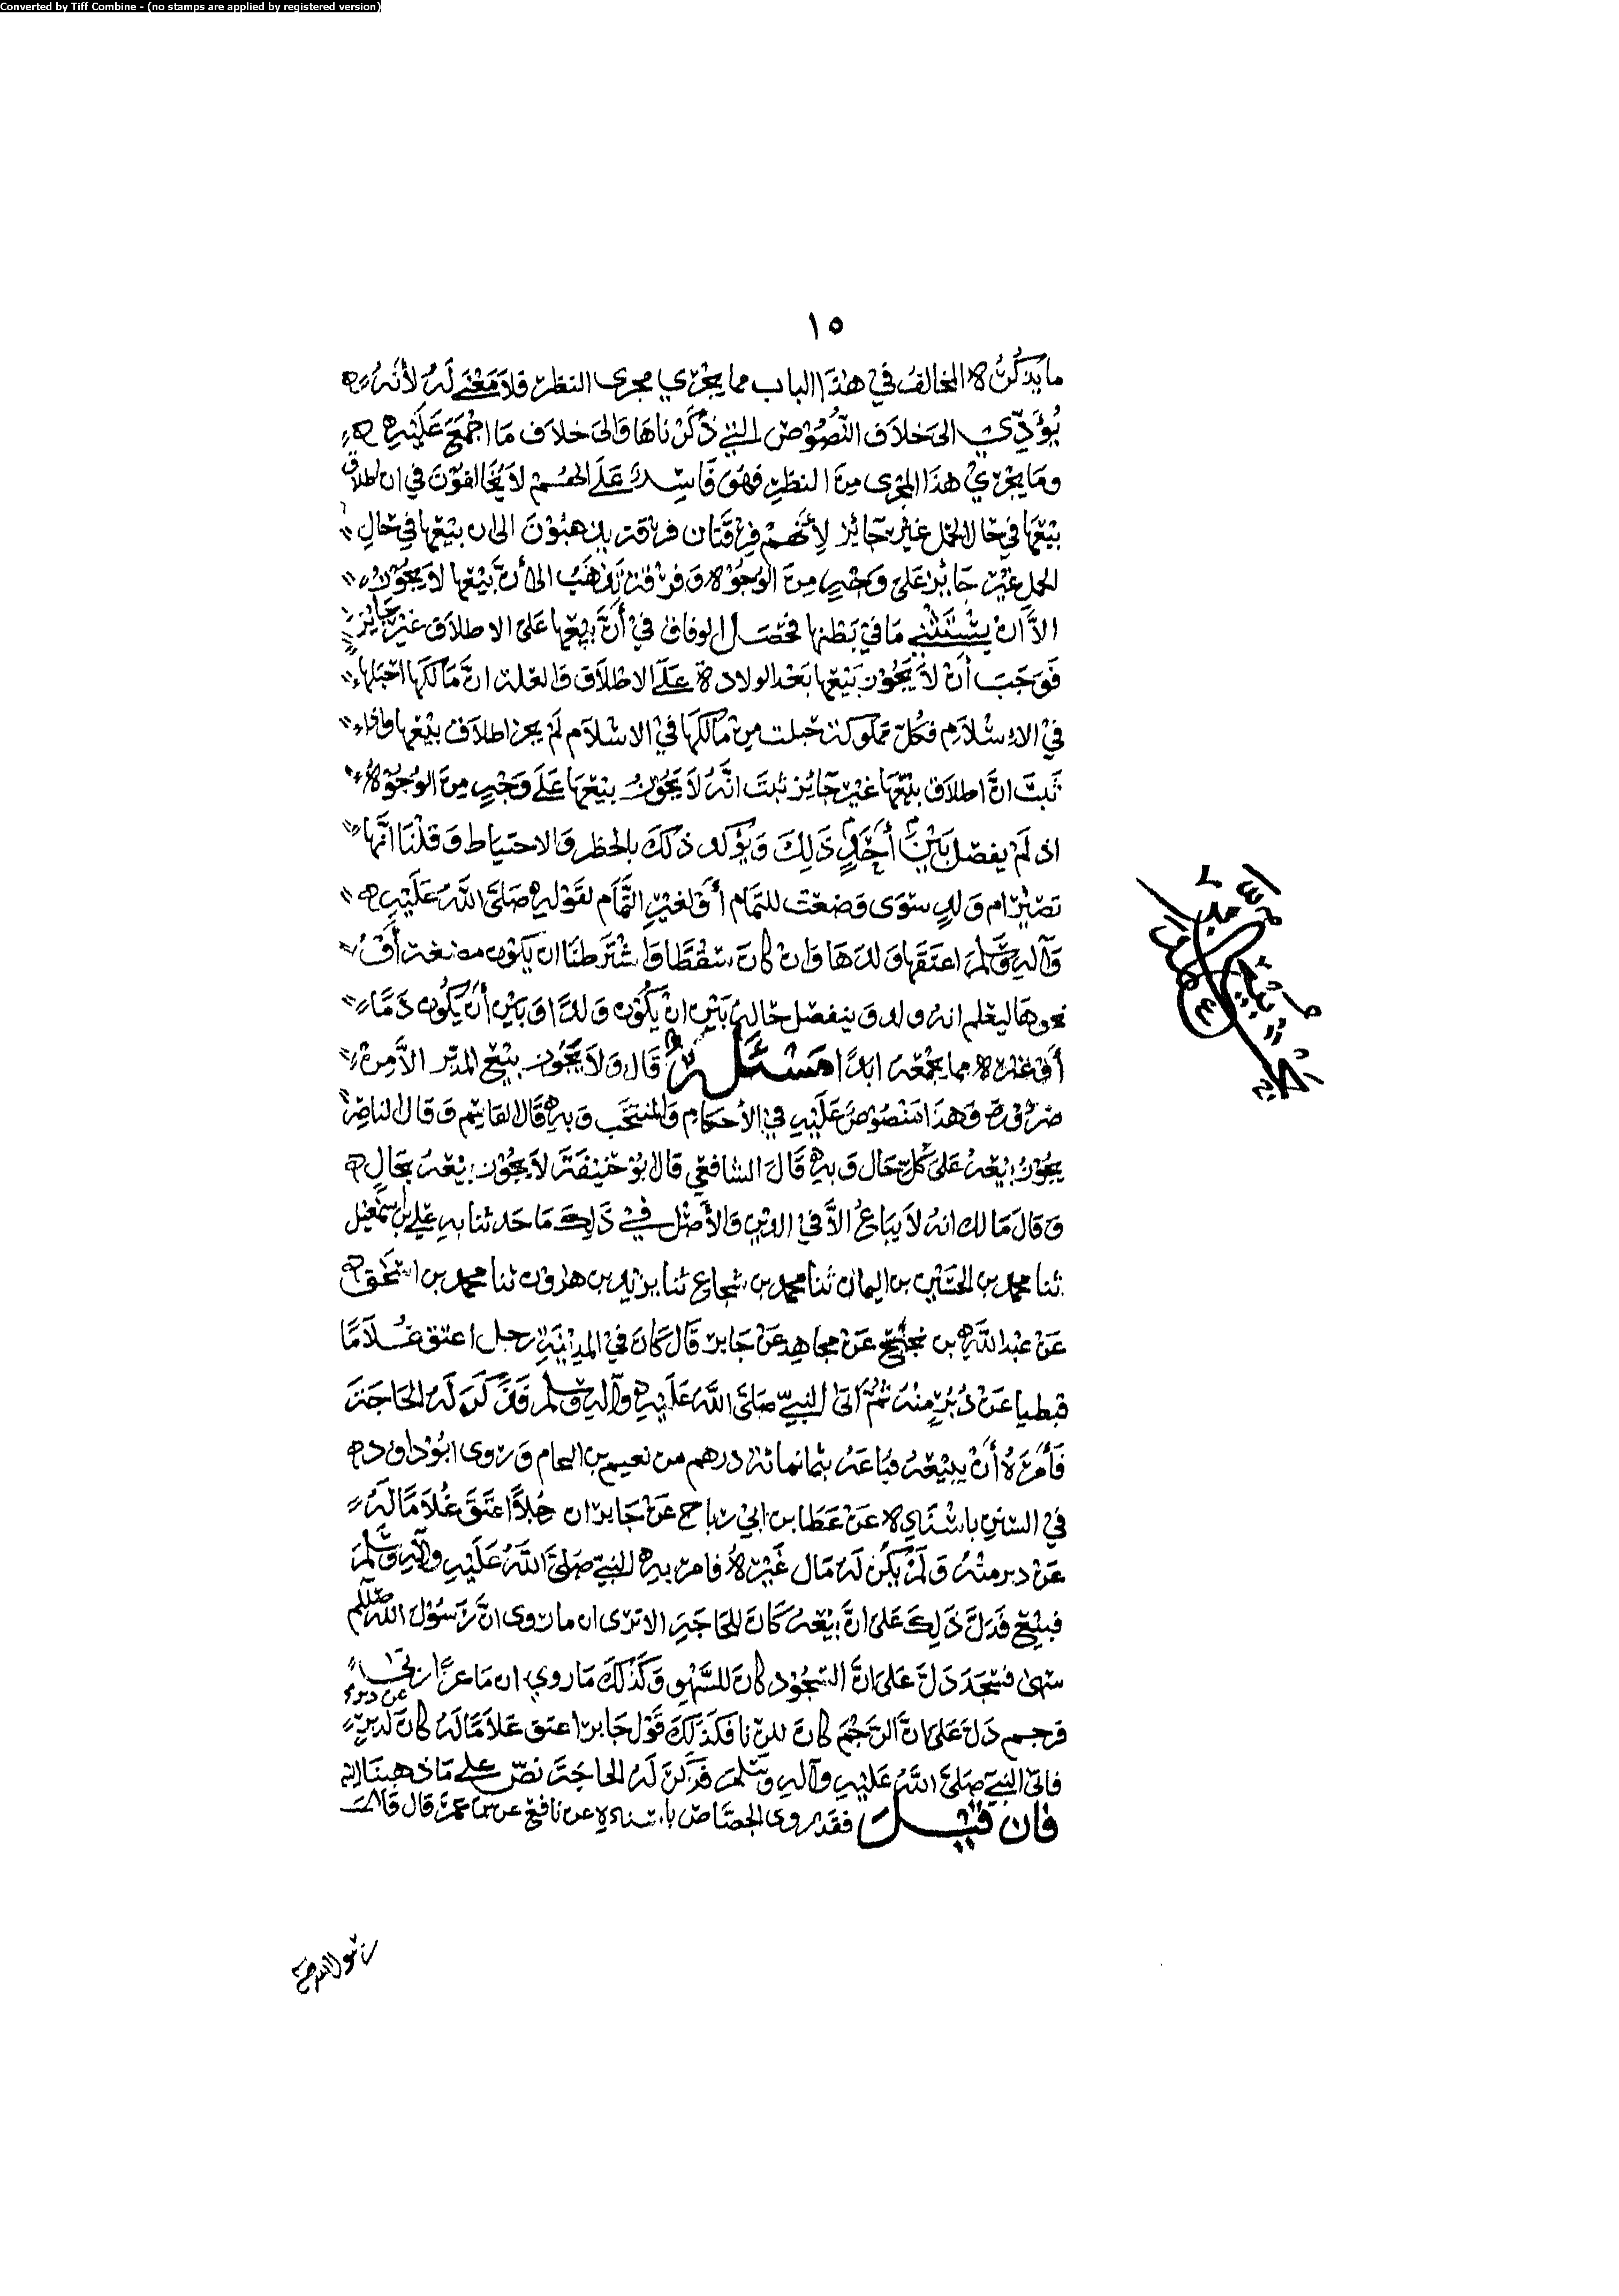 Converted by Tiff Combine - (no stamps are applied by registered version)
١٥
ما يذكره المخالف في هذا الباب مما يجري مجرى النظر فلا معنى له لأنه
يؤدي الى خلاف النصوص التي ذكرناها والى خلاف ما اجمع عليه
وما يجري هذا المجرى من النظر فهو فاسد على انهم لا يخالفون في ان اطلاق
بيعها في حال الحمل غير جائز لأنهم فرقتان فرقة يذهبون الى ان بيعها في حال
الحمل غير جائز على وجه من الوجوه وفرقة تذهب الى أن بيعها لا يجوز
الا ان يستثنى ما في بطنها فحصل الوفاق في أن بيعها على الاطلاق غير جايز
فوجب أن لا يجوز بيعها بعد الولادة على الاطلاق والعلة ان مالكها احبلها
في الاسلام فكل مملوكة حبلت من مالكها في الاسلام لم يجز اطلاق بيعها واذا
ثبت ان اطلاق بيعها غير جائز ثبت انه لا يجوز بيعها على وجه من الوجوه
اذ لم يفصل بين أحد ذلك ويؤكد ذلك بالحظر والاحتياط وقلنا انها
تصير ام ولد سوى وضعت للتمام أو لغير التمام لقوله صلى الله عليه
وآله وسلم اعتقها ولدها وان كان سقطا واشترطنا ان يكون مضغة أو
نحوها ليعلم انه ولد وينفصل حاله بين ان يكون ولدا وبين أن يكون دما
أو غيره مما يجمعه ابدا مسئلة قال ولا يجوز بيع المدبر الا من
ضرورة وهذا منصوص عليه في الأحكام والمنتخب وبه قال القاسم وقال الناصر
يجوز بيعه على كل حال وبه قال الشافعي قال ابو حنيفة لا يجوز بيعه بحال
وقال مالك انه لا يباع الا في الدين والأصل في ذلك ما حدثنا به علي بن اسمعيل
ثنا محمد بن الحسين بن اليمان ثنا محمد بن شجاع ثنا يزيد بن هارون ثنا محمد بن اسحق
عن عبد الله بن نجيح عن مجاهد عن جابر قال كان في المدينة رجل اعتق غلاما
قبطيا عن دبر منه ثم اتى النبي صلى الله عليه وآله وسلم فذكر له الحاجة
فأمره أن يبيعه فباعه بثمانمائة درهم من نعيم بن النحام وروى ابو داود
في السنن باسناده عن عطا بن ابي رباح عن جابر ان رجلا اعتق غلاما له
عن دبر منه ولم يكن له مال غيره فامر به النبي صلى الله عليه وآله وسلم
فبيع فدل ذلك على ان بيعه كان للحاجة الا ترى ان ما روى ان رسول الله صللم
سهى فسجد دل على ان السجود كان للسهو وكذلك ما روي ان ماعزا زنى
فرجم دل على ان الرجم كان للزنا فكذلك قول جابر اعتق غلاما له كان لدبر
عن دبر
فاتى النبي صلى الله عليه وآله وسلم فذكر له الحاجة نص على ما ذهبنا اليه
فان قيل فقد روى الجصاص باسناده عن نافع عن بن عمر قال قال
رسول الله